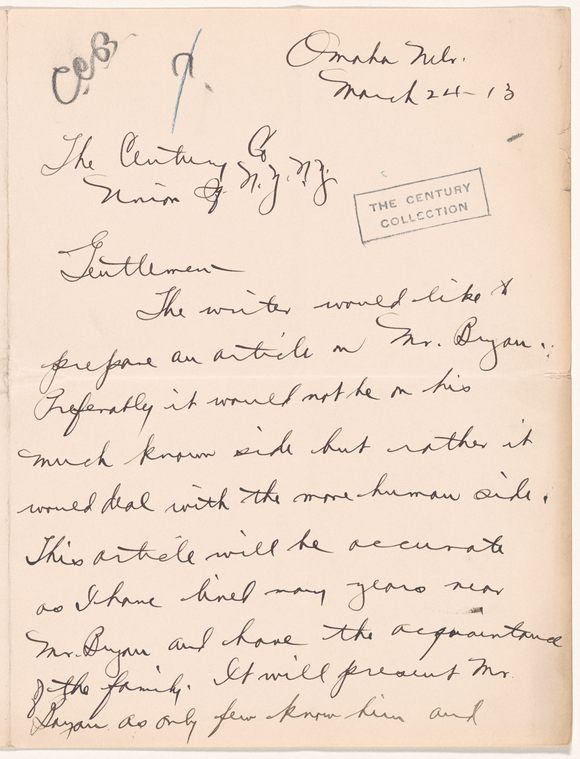 CCB
Omaha Neb.
March 24-13
The Century Co
Union Sq N.Y. N.Y.
THE CENTURY
COLLECTION
Gentlemen
The writer would like to
prepare an article on Mr. Bryan.
Preferably it would not be on his
much known side but rather it
would deal with the more human side.
This article will be accurate
as I have lived many years near
Mr. Bryan and have the acquaintance
of the family. It will present Mr.
Bryan as only few know him and